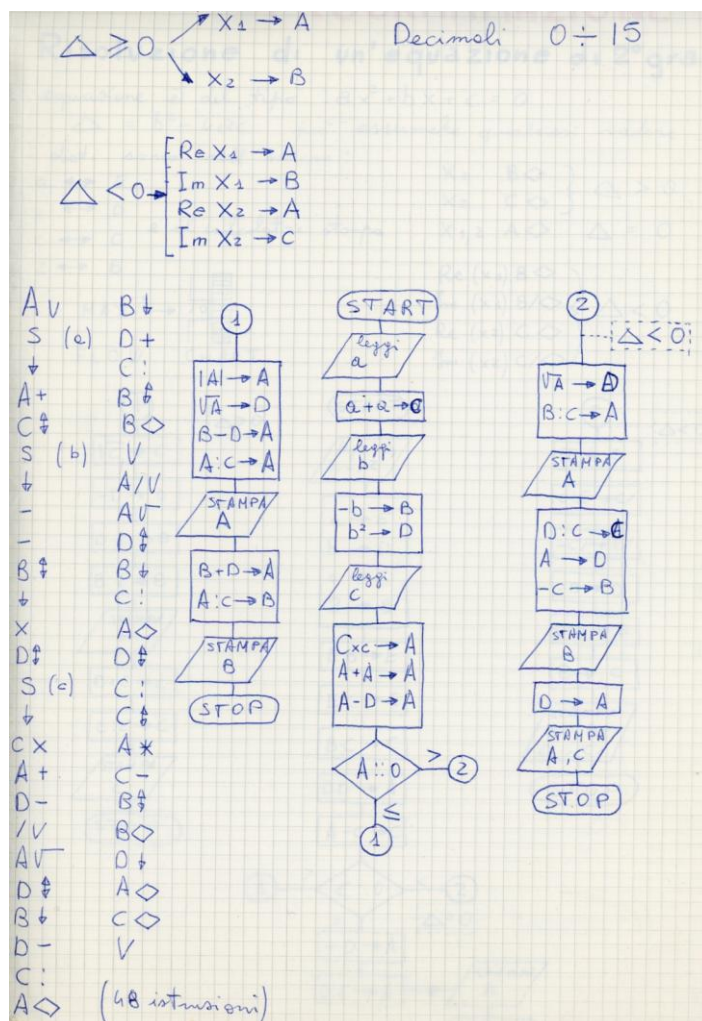 △ ≥ 0
X1 → A
X2 → B
Decimali 0 ÷ 15
△ < 0 →
Re X1 → A
Im X1 → B
Re X2 → A
Im X2 → C
A V
S (a)
↓
A +
C ↕
S (b)
↓
-
-
B ↕
↓
X
D ↕
S (c)
↓
C X
A +
D -
/ V
A √
D ↕
B ↓
D -
C :
A ◇
B ↓
D +
C :
B ↕
B ◇
V
A / V
A √
D ↕
B ↓
C :
A ◇
D ↕
C :
C ↕
A *
C -
B ↕
B ◇
D ↓
A ◇
C ◇
V
(48 istruzioni)
1
|A| → A
√A → D
B - D → A
A : C → A
STAMPA
A
B + D → A
A : C → B
STAMPA
B
STOP
START
leggi
a
a + a → C
leggi
b
-b → B
b² → D
leggi
c
C x c → A
A + A → A
A - D → A
A :: 0
>
2
≤
1
2
△ < 0
√A → D
B : C → A
STAMPA
A
D : C → C
A → D
-C → B
STAMPA
B
D → A
STAMPA
A, C
STOP